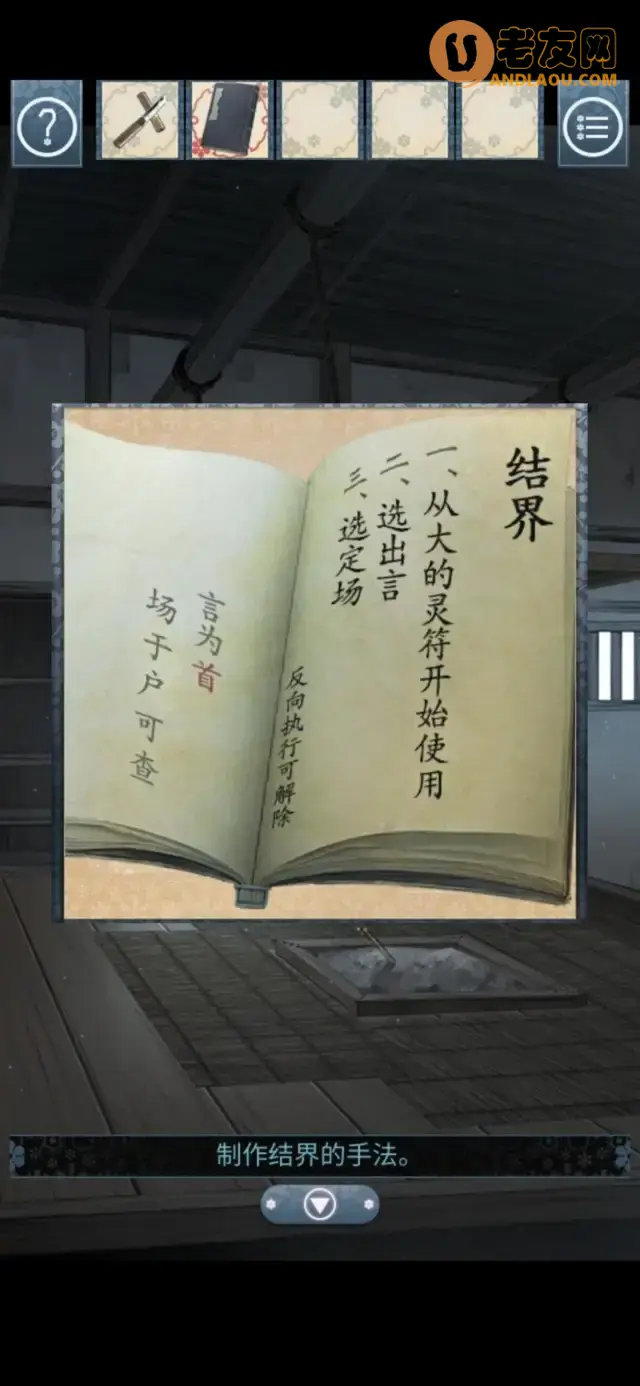 老友网
ANDLAOU.COM
结界
一、从大的灵符开始使用
二、选出言
三、选定场
反向执行可解除
言为首
场于户可查
制作结界的手法。